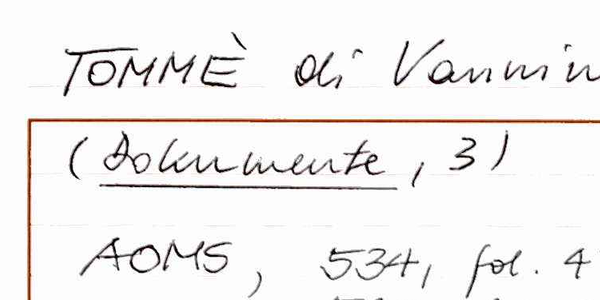 TOMMÈ di Vannin
(Dokumente, 3)
AOMS, 534, fol. 4